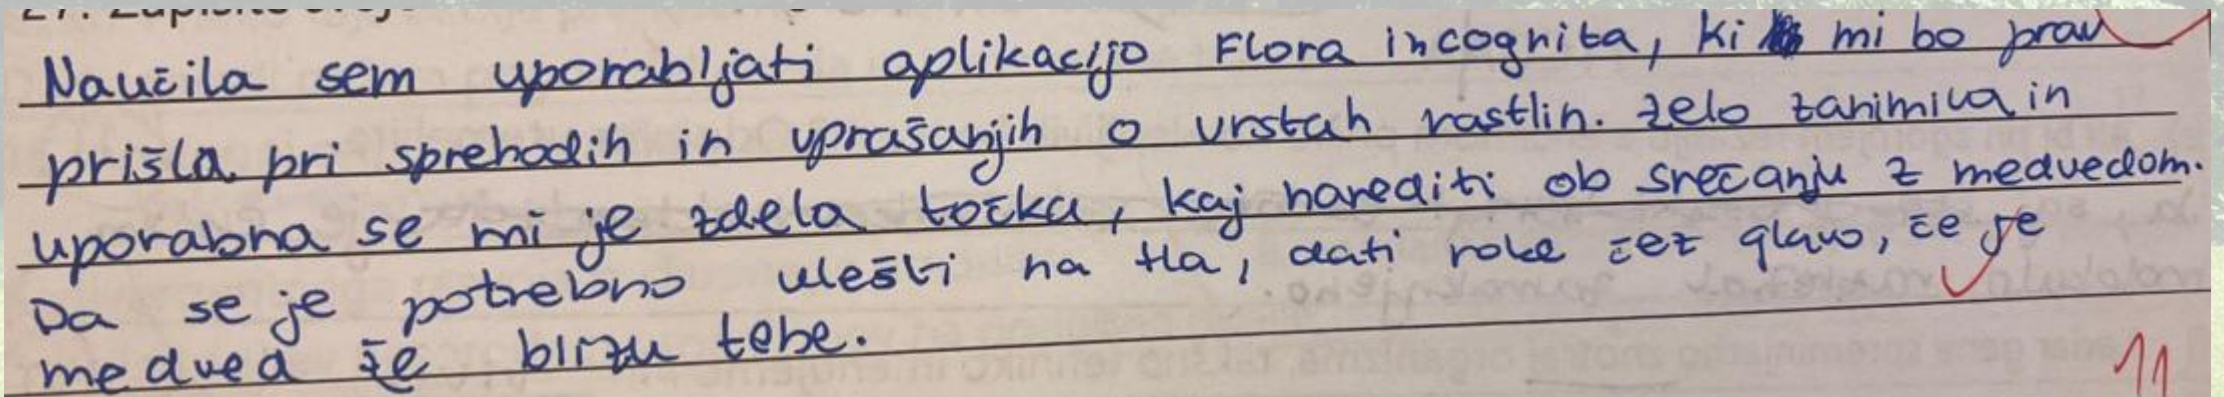 27. Zapišite svoje
Naučila sem uporabljati aplikacijo Flora incognita, ki mi bo prav
prišla pri sprehodih in vprašanjih o vrstah rastlin. Zelo zanimiva in
uporabna se mi je zdela točka, kaj narediti ob srečanju z medvedom.
Da se je potrebno ulešti na tla, dati roke čez glavo, če je
medved že blizu tebe.
11